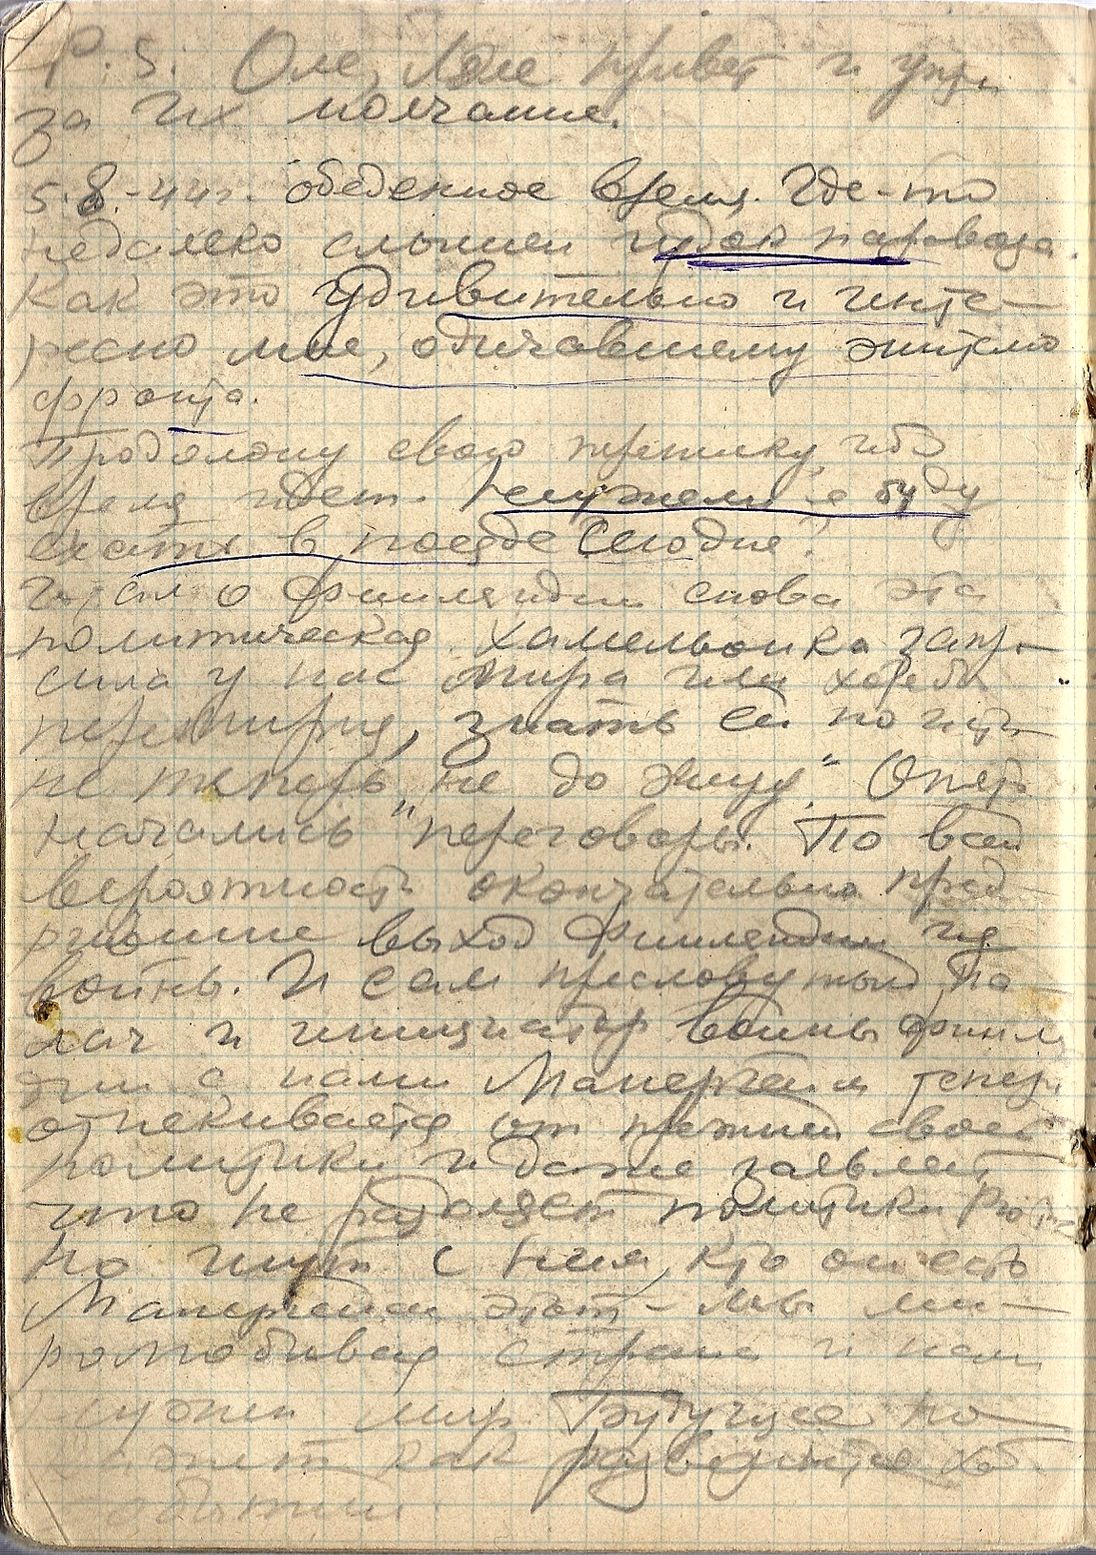 P.S. Оле, Ляле привет и упрек
за их молчание.
5.8.-44г. обеденное время. Где-то
недалеко слышен гудок паровоза.
Как это удивительно и инте-
ресно мне, одичавшему жителю
фронта.
Продолжу свою переписку, ибо
время идет. Неужели я буду
ехать в поезде сегодня?
Писал о Финляндии снова эта
политическая хамельонка запро-
сила у нас мира или хотя бы
перемирия, знать ей по нут-
не теперь "не до жиру". Опять
начались "переговоры. По всей
вероятность окончательно пред-
решение выход Финляндии из
войны. И сам пресловутый па-
лач и инициатор войны Финлян
дии с нами Манергейм теперь
отнекивается от прежней своей
политики и даже заявляет
что не разделяет политики Рюти
Но шут с ним, кто он есть
Манергейм этот - мы ми-
ролюбивая страна и нам
нужен мир. Будущее по-
кажет как развернутся ход
событий.